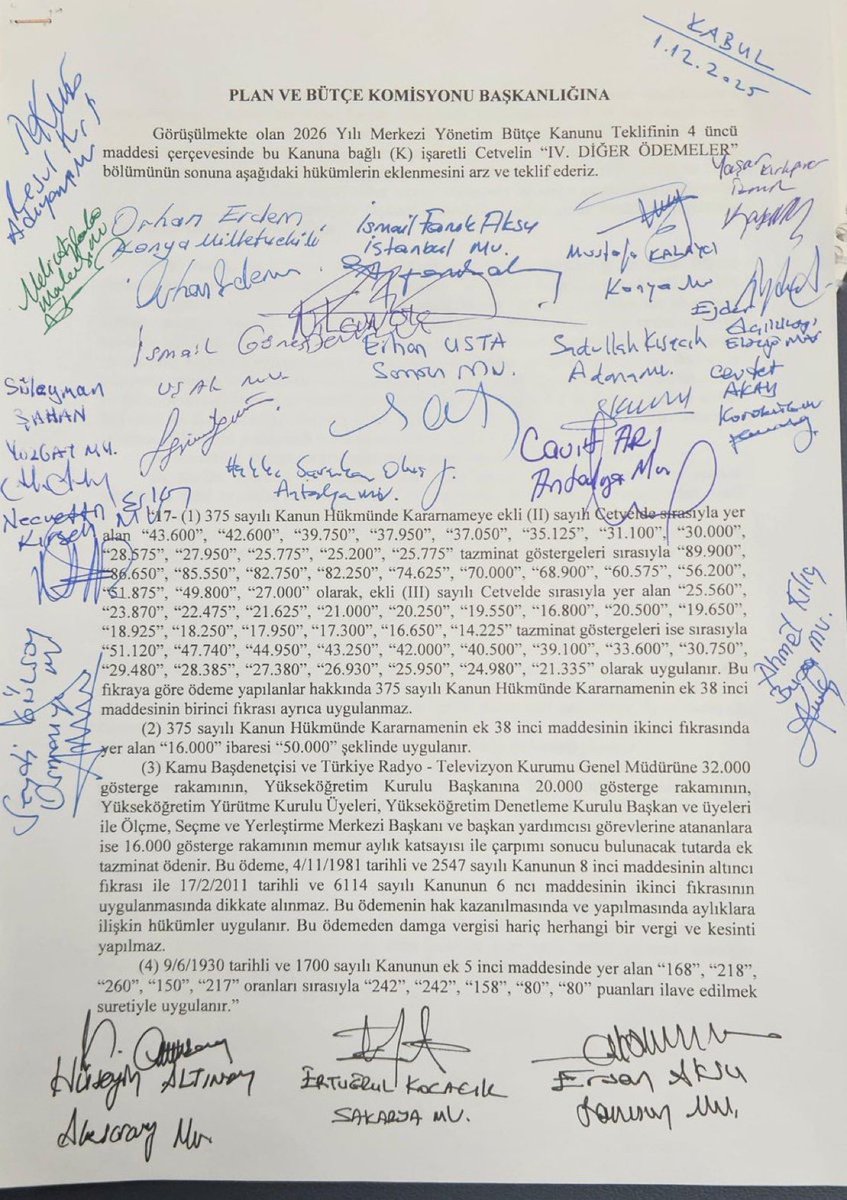 KABUL
1.12.2025
PLAN VE BÜTÇE KOMİSYONU BAŞKANLIĞINA
Görüşülmekte olan 2026 Yılı Merkezi Yönetim Bütçe Kanunu Teklifinin 4 üncü
maddesi çerçevesinde bu Kanuna bağlı (K) işaretli Cetvelin “IV. DİĞER ÖDEMELER”
bölümünün sonuna aşağıdaki hükümlerin eklenmesini arz ve teklif ederiz.
Adıyaman Mv
Orhan Erdem
Konya Milletvekili
Orhan Erdem
İsmail Faruk Aksu
İstanbul Mv.
Mustafa KALAYCI
Konya Mv
Yaşar Kırkpınar
İzmir
İsmail Güneş
UŞAK MV.
Erhan USTA
Samsun MV.
Sadullah Kısacık
Adana Mv.
Ejder
Açıkkapı
Elazığ Mv
Cevdet
AKAY
Karabük
Süleyman
ŞAHAN
YOZGAT MV.
Cavit ARI
Antalya Mv.
Hakkı Saruhan Oluç
Antalya Mv.
Necmettin Erkan
Kırşehir MV
“17- (1) 375 sayılı Kanun Hükmünde Kararnameye ekli (II) sayılı Cetvelde sırasıyla yer
alan “43.600”, “42.600”, “39.750”, “37.950”, “37.050”, “35.125”, “31.100”, “30.000”,
“28.575”, “27.950”, “25.775”, “25.200”, “25.775” tazminat göstergeleri sırasıyla “89.900”,
“86.650”, “85.550”, “82.750”, “82.250”, “74.625”, “70.000”, “68.900”, “60.575”, “56.200”,
“51.875”, “49.800”, “27.000” olarak, ekli (III) sayılı Cetvelde sırasıyla yer alan “25.560”,
“23.870”, “22.475”, “21.625”, “21.000”, “20.250”, “19.550”, “16.800”, “20.500”, “19.650”,
“18.925”, “18.250”, “17.950”, “17.300”, “16.650”, “14.225” tazminat göstergeleri ise sırasıyla
“51.120”, “47.740”, “44.950”, “43.250”, “42.000”, “40.500”, “39.100”, “33.600”, “30.750”,
“29.480”, “28.385”, “27.380”, “26.930”, “25.950”, “24.980”, “21.335” olarak uygulanır. Bu
fıkraya göre ödeme yapılanlar hakkında 375 sayılı Kanun Hükmünde Kararnamenin ek 38 inci
maddesinin birinci fıkrası ayrıca uygulanmaz.
Ahmet Kılıç
Bursa Mv.
(2) 375 sayılı Kanun Hükmünde Kararnamenin ek 38 inci maddesinin ikinci fıkrasında
yer alan “16.000” ibaresi “50.000” şeklinde uygulanır.
(3) Kamu Başdenetçisi ve Türkiye Radyo - Televizyon Kurumu Genel Müdürüne 32.000
gösterge rakamının, Yükseköğretim Kurulu Başkanına 20.000 gösterge rakamının,
Yükseköğretim Yürütme Kurulu Üyeleri, Yükseköğretim Denetleme Kurulu Başkan ve üyeleri
ile Ölçme, Seçme ve Yerleştirme Merkezi Başkanı ve başkan yardımcısı görevlerine atananlara
ise 16.000 gösterge rakamının memur aylık katsayısı ile çarpımı sonucu bulunacak tutarda ek
tazminat ödenir. Bu ödeme, 4/11/1981 tarihli ve 2547 sayılı Kanunun 8 inci maddesinin altıncı
fıkrası ile 17/2/2011 tarihli ve 6114 sayılı Kanunun 6 ncı maddesinin ikinci fıkrasının
uygulanmasında dikkate alınmaz. Bu ödemenin hak kazanılmasında ve yapılmasında aylıklara
ilişkin hükümler uygulanır. Bu ödemeden damga vergisi hariç herhangi bir vergi ve kesinti
yapılmaz.
(4) 9/6/1930 tarihli ve 1700 sayılı Kanunun ek 5 inci maddesinde yer alan “168”, “218”,
“260”, “150”, “217” oranları sırasıyla “242”, “242”, “158”, “80”, “80” puanları ilave edilmek
suretiyle uygulanır.”
Hüseyin ALTINSOY
Aksaray Mv.
ERTUĞRUL KOCACIK
SAKARYA MV.
Ersan AKSU
Samsun Mv.